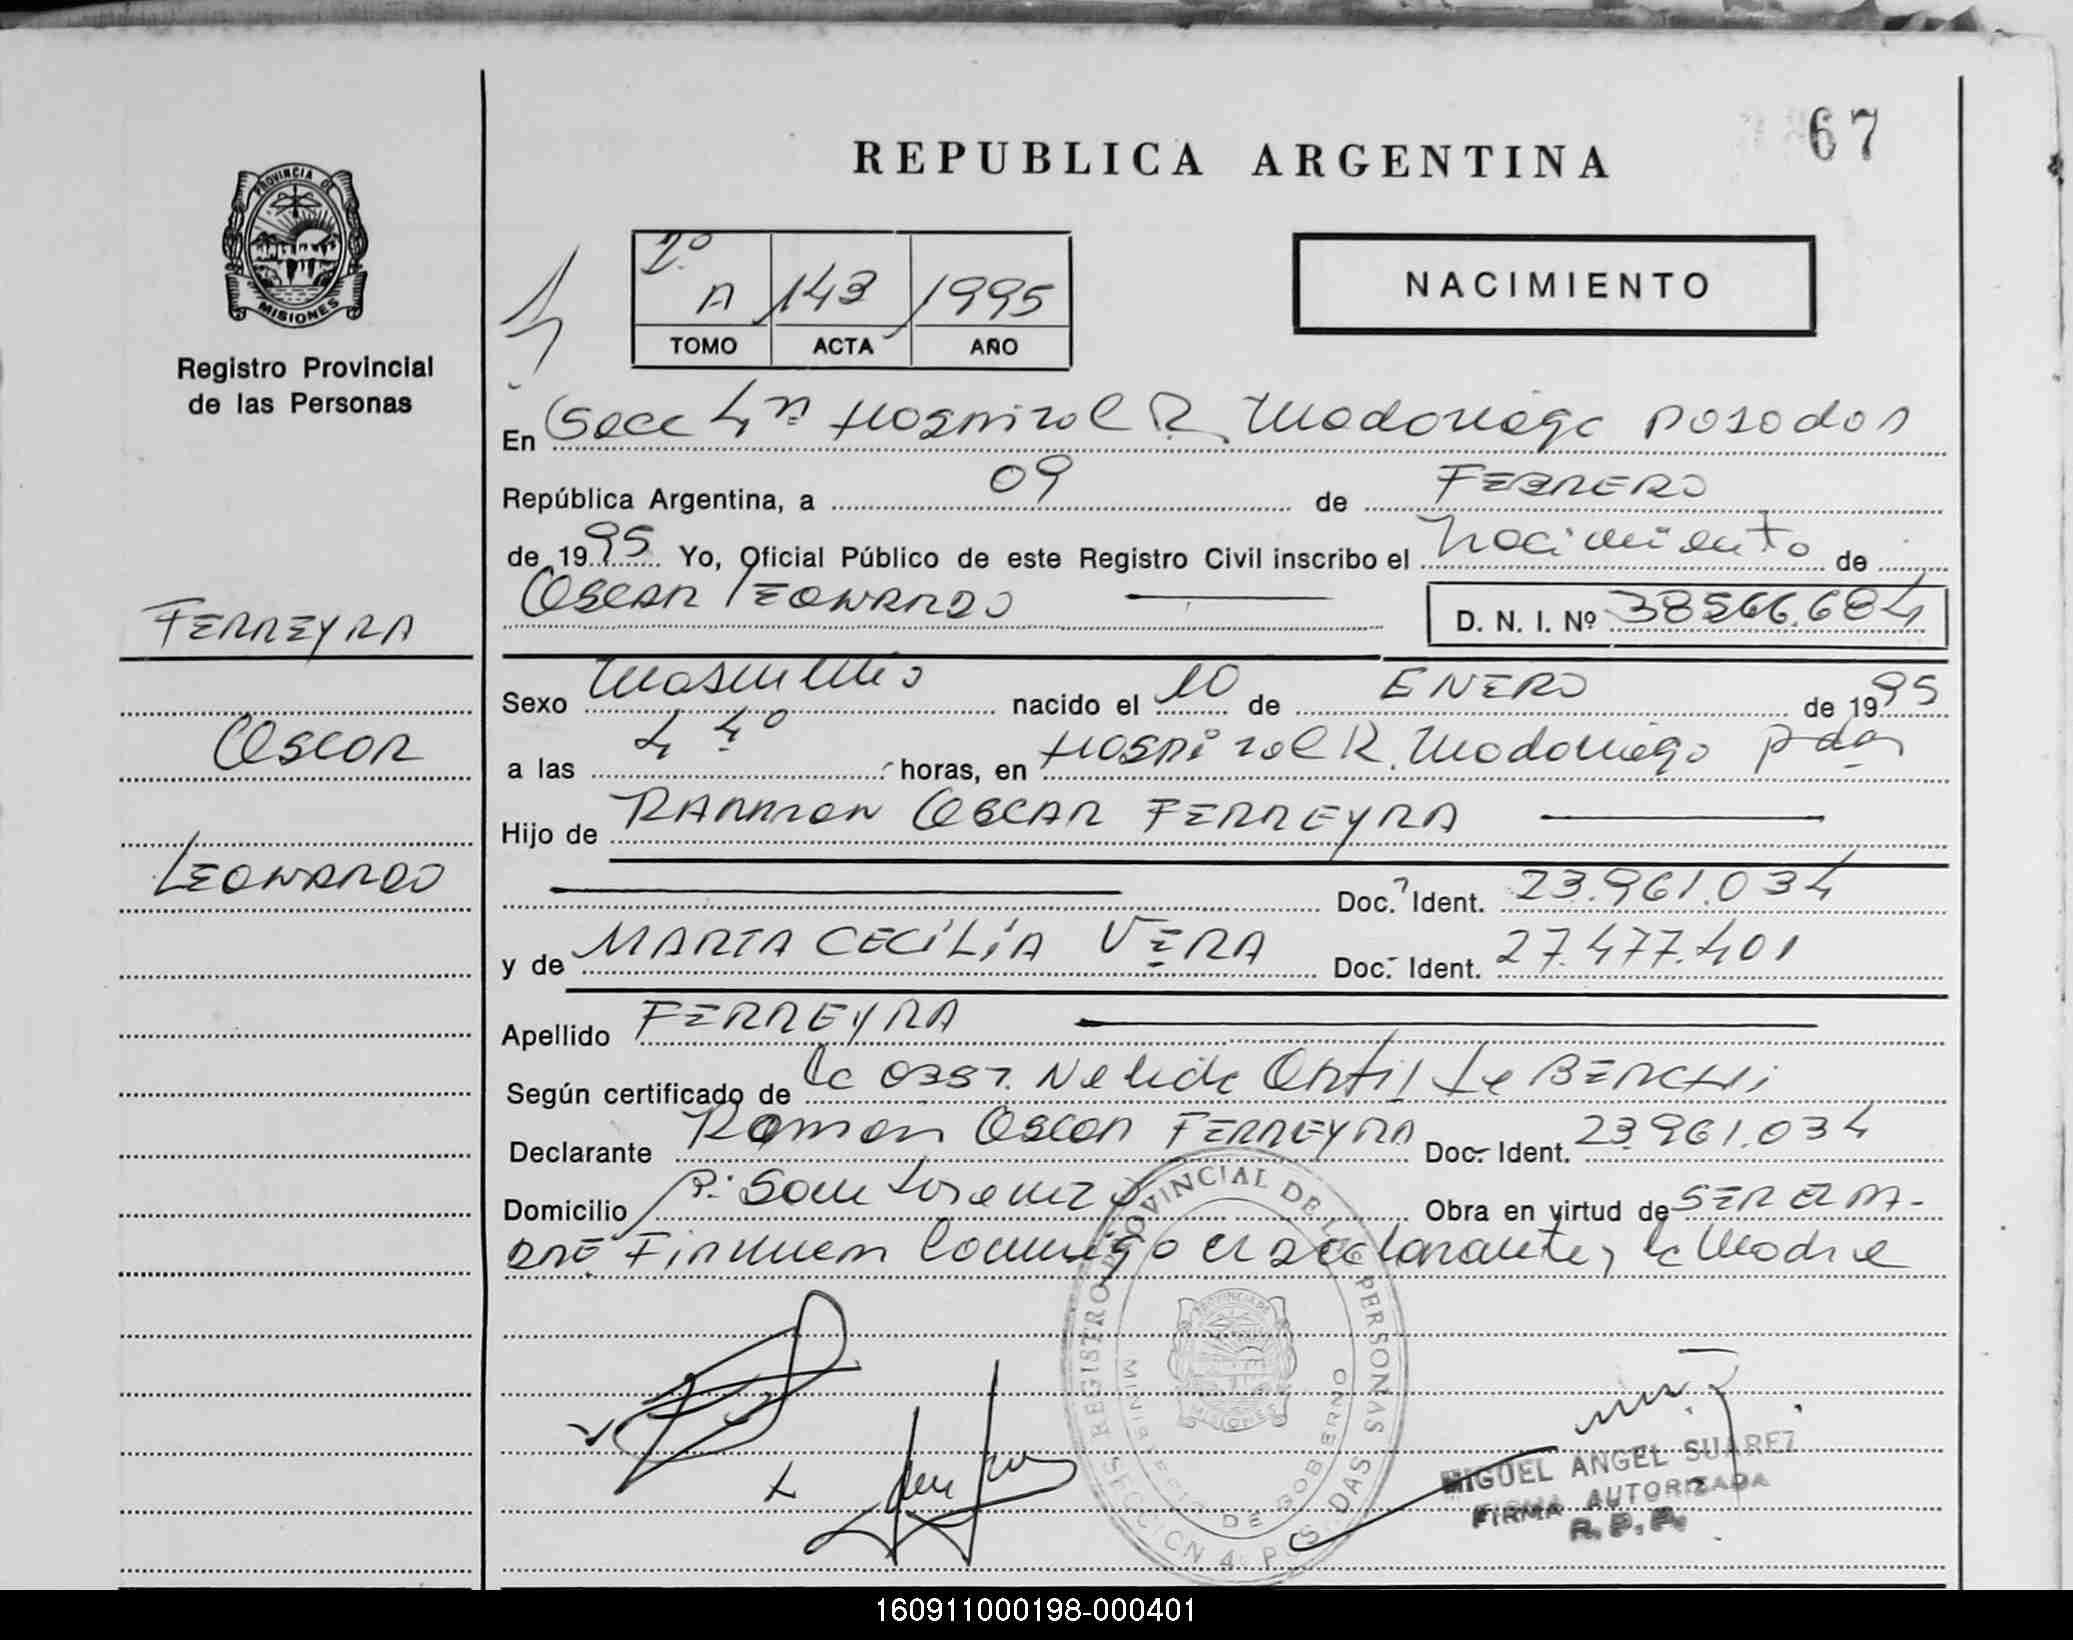 67
REPUBLICA ARGENTINA
PROVINCIA DE
MISIONES
Registro Provincial
de las Personas
2º
A 143 1995
TOMO ACTA AÑO
NACIMIENTO
En Secc 4ª Hospital R. Madariaga Posadas
República Argentina, a 09 de FEBRERO
de 1995 Yo, Oficial Público de este Registro Civil inscribo el Nacimiento de
OSCAR LEONARDO
D. N. I. Nº 38566.684
FERREYRA
Oscar
LEONARDO
Sexo Masculino nacido el 10 de ENERO de 1995
a las 4 4º horas, en Hospital R. Madariaga Pdas
Hijo de RAMMON OSCAR FERREYRA
Doc. Ident. 23.961.034
y de MARIA CECILIA VERA Doc. Ident. 27.477.401
Apellido FERREYRA
Según certificado de la OBST. Nelida de BERCHI
Declarante Ramon Oscar FERREYRA Doc. Ident. 23961.034
Domicilio San Lorenzo Obra en virtud de SER EL PA-
DRE Firman Conmigo el declarante y la Madre
REGISTRO PROVINCIAL DE LAS PERSONAS
PROVINCIA DE
MISIONES
MINISTERIO DE GOBERNO
SECCION 4 POSADAS
MIGUEL ANGEL SUAREZ
FIRMA AUTORIZADA
R. P. P.
160911000198-000401